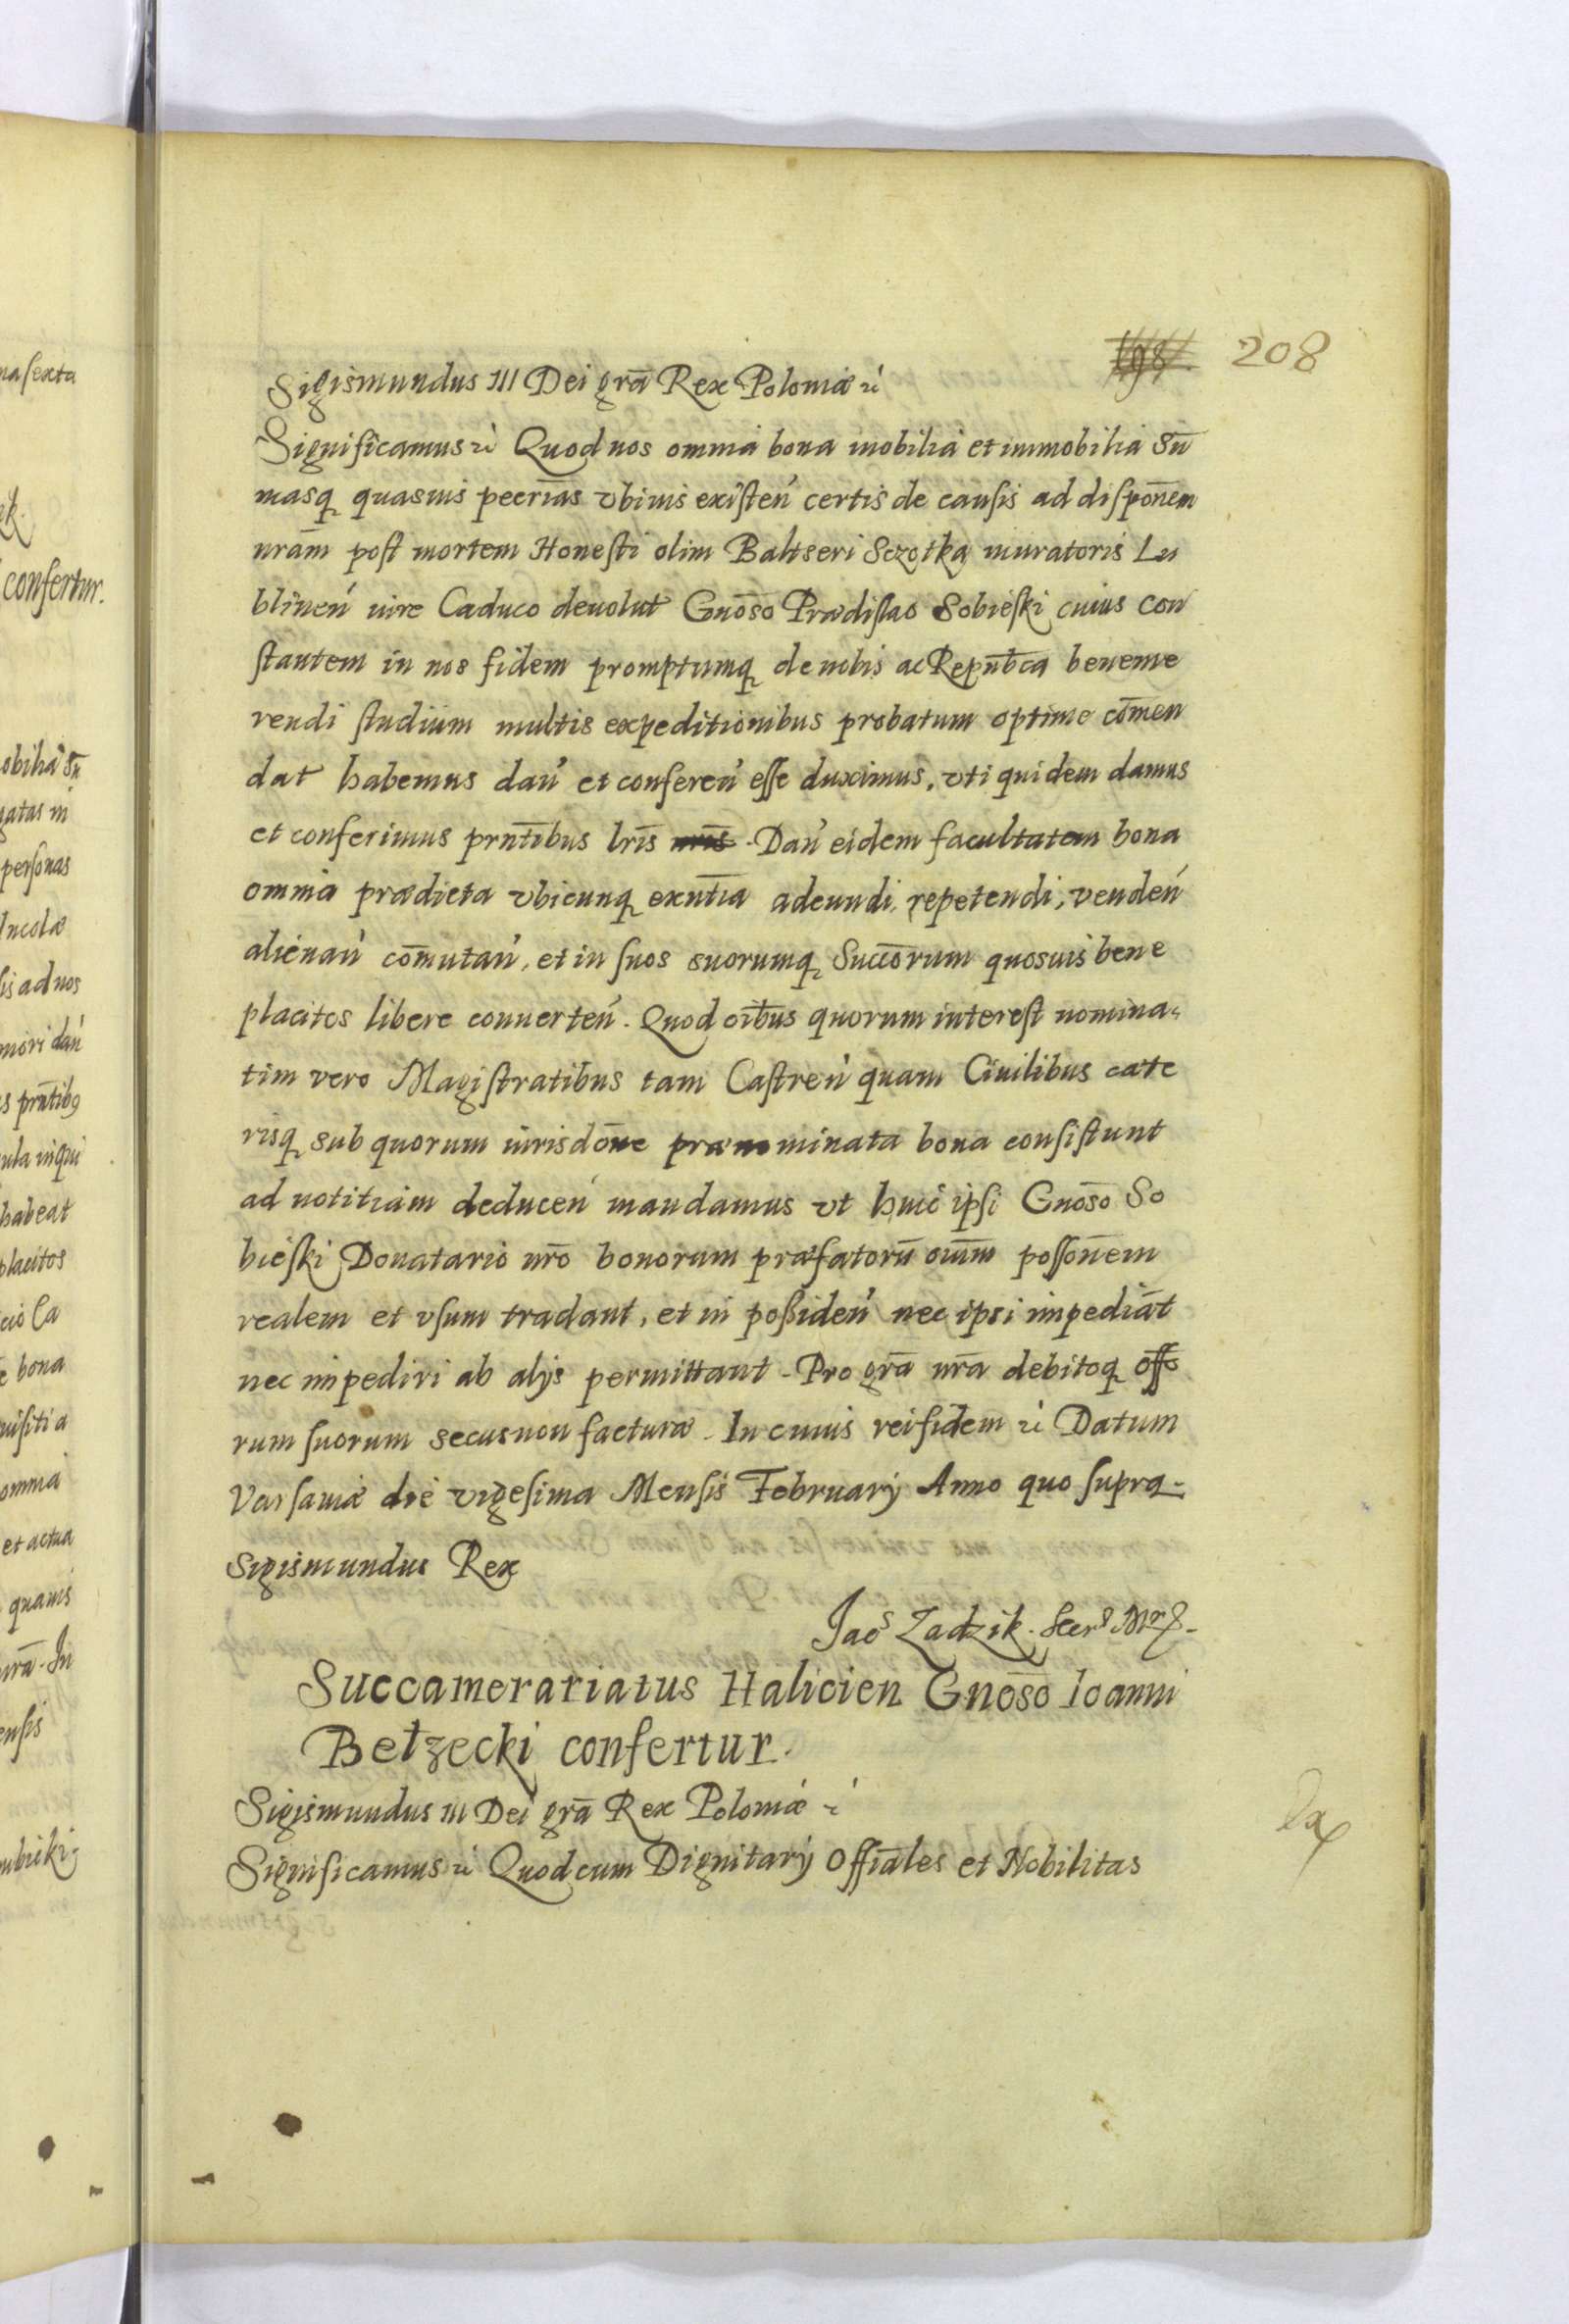 208
Sigismundus III Dei grã Rex Poloniæ
Significamus Quod nos omnia bona mobilia et immobilia Sũ
masq quasuis pecrias vbiuis existeń certis de causis ad disponem
nram post mortem Honesti olim Baltseri Sczotka muratoris Lu
blineń iure Caduco deuolut Gnoso Prædislao Sobieski cuius con
stantem in nos fidem promptumq de nobis ac Repubca beneme
rendi studium multis expeditionibus probatum optime cõmen
dat habemus dań et confereń esse duximus, vti quidem damus
et conferimus prntibus lris nris. Dań eidem facultatem bona
omnia prædicta vbicunq exntia adeundi, repetendi, vendeń
alienań cõmutań, et in suos suorumq Succorum quosuis bene
placitos libere conuerteń. Quod oibus quorum interest nomina=
tim vero Magistratibus tam Castreń quam Ciuilibus cæte
risq sub quorum iurisdone prænominata bona consistunt
ad notitiam deduceń mandamus vt huic ipsi Gnoso So
bieski Donatario nro bonorum præfatorũ oium possonem
realem et vsum tradant, et in possideń nec ipsi impediãt
nec impediri ab alys permittant. Pro grã nrã debitoq offo
rum suorum secus non facturæ. In cuius rei fidem Datum
Varsauiæ die vigesima Mensis February Anno quo supra.
Sigismundus Rex
Jacs Zadzik. Secrs
Succamerariatus Halicien Gnoso Ioanni
Bełzecki confertur.
Sigismundus III Dei grã Rex Poloniæ
Significamus Quod cum Dignitary Offiales et Nobilitas
na sexta
confertur.
obilia Sũ
gatas in
personas
Incolæ
is ad nos
mori dań
s prntib9
ula inqui
habeat
placitos
cio Ca
e bona
uisiti a
omnia
et actua
quauis
nrã. In
ensis